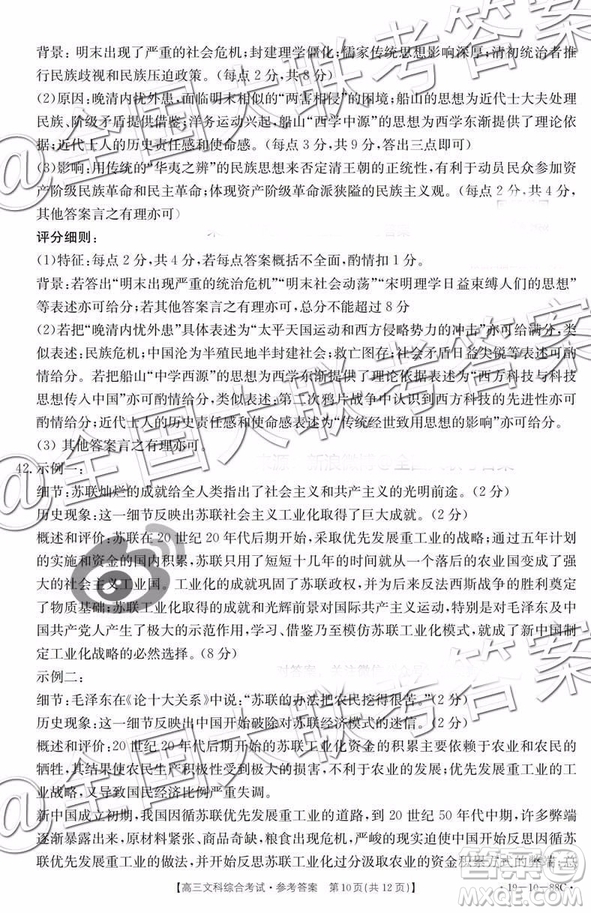 背景：明末出现了严重的社会危机；封建理学僵化；儒家传统思想的影响深厚；清初统治者推
行民族歧视和民族压迫政策。（每点 2 分，共 8 分）
(2)原因：晚清内忧外患，面临明末相似的“两害相侵”的困境；船山的思想为近代士大夫处理民
族、阶级矛盾提供借鉴；洋务运动兴起，船山“西学中源”的思想为西学东渐提供了理论依
据；近代士人的历史责任感和使命感。（每点 3 分，共 9 分，答出三点即可）
(3)影响：用传统的“华夷之辨”的民族思想来否定清王朝的正统性，有利于动员民众参加资产
阶级民族革命和民主革命；体现资产阶级革命派狭隘的民族主义观。（每点 4 分，共 8 分，
其他答案言之有理亦可）
评分细则：
(1)特征：每点 2 分，共 4 分，若答案概括不全面，酌情扣 1 分。
背景：若答出“明末出现严重的统治危机”“明末社会动荡”“宋明理学日益束缚人们的思想”
等表述亦可给分；若其他答案言之有理亦可，总分不能超过 8 分
(2)若把“晚清内忧外患”具体表述为“太平天国运动和西方侵略势力的冲击”亦可给满分；表
述为：民族危机；中国沦为半殖民地半封建社会；救亡图存；社会矛盾日益尖锐等表述可酌情
给分。若把船山“中学西源”的思想为西学东渐提供了理论依据，表述为“西方科技与科技
思想传入中国”亦可酌情给分；表述为：第二次鸦片战争中认识到西方科技的先进性亦可
酌情给分；若表述为有志之士的历史使命感亦可给满分。
(3) 其他答案言之有理亦可给分。
42. 示例一：
细节：苏联灿烂的成就给全人类指出了社会主义和共产主义的光明前途。（2 分）
历史现象：这一细节反映出苏联社会主义工业化取得了巨大成就。（2 分）
概述和评价：苏联在 20 世纪 20 年代后期开始，采取优先发展重工业的战略；通过五年计划
的实施和资金的积累，苏联只用了短短十几年的时间就从一个落后的农业国变成了强大
的社会主义工业国。工业化的成就巩固了苏联政权，并为反法西斯战争的胜利奠定
了物质基础；苏联工业化取得的成就和光辉前景对国际共产主义运动，特别是对毛泽东及中
国共产党人产生了极大的影响，学习、借鉴乃至模仿苏联工业化战略也就成为新中国制定
工业化战略的必然选择。（8 分）
示例二：
细节：毛泽东在《论十大关系》中说：“苏联的办法把农民挖得很苦。”（2 分）
历史现象：这一细节反映出中国开始破除对苏联经济模式的迷信。（2 分）
概述和评价：20 世纪 20 年代后期的苏联工业化资金的积累主要依赖于农业和农民的
牺牲，其后果是极大地挫伤了农民的积极性，阻碍了农业的发展；优先发展重工业的战略
的实施，又导致国家经济比例严重失调。
新中国成立初期，我国仿效苏联优先发展重工业的道路，到 20 世纪 50 年代中期，许多弊端
逐渐暴露出来，原材料短缺、商品奇缺，粮食出现紧张局面等，这些问题产生的原因是因循
苏联优先发展重工业的战略和依靠农业的资金积累方式而必然出现的弊端；总
【高三文科综合考试·参考答案　第 10 页(共 12 页)】
·19－10－88C·
@全国大联考答案